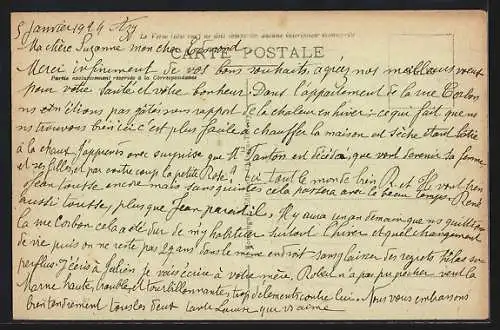 5 Janvier 1924
Ma chère Suzanne mon cher Edmond
CARTE POSTALE
Merci infiniment de vos bons souhaits, agréez nos meilleurs voeux
Partie exclusivement réservée à la Correspondance
pour votre santé et votre bonheur. Dans l'appartement de la rue Corbon
ns n'étions pas gâtés sous rapport de la chaleur en hiver : ce qui fait que ns
ns trouvons bien ici c'est plus facile à chauffer la maison est sèche étant bâtie
à la chaux. J'apprends avec surprise que Mr Tanton est décédé, que vont devenir sa femme
et ses filles, et par contre coup la petite Rose? Ici tout le monde va bien R. et vont bien
Jean tousse encore mais sans quintes cela passera avec le beau temps. René
aussi tousse, plus que Jean paraît-il. Il y aura un an demain que ns quittions
la rue Corbon cela a été dur de m'y habituer surtout l'hiver et quel changement
de vie puis on ne reste pas 29 ans dans le même endroit sans laisser des regrets hélas su-
perflus. J'écris à Julien je vais écrire à votre mère. Robert n'a pas pu pêcher vent la
Marne haute, trouble et tourbillonnante, trop d'éléments contre lui. Nous vous embrassons
bien tendrement tous les deux tante Louise qui vs aime